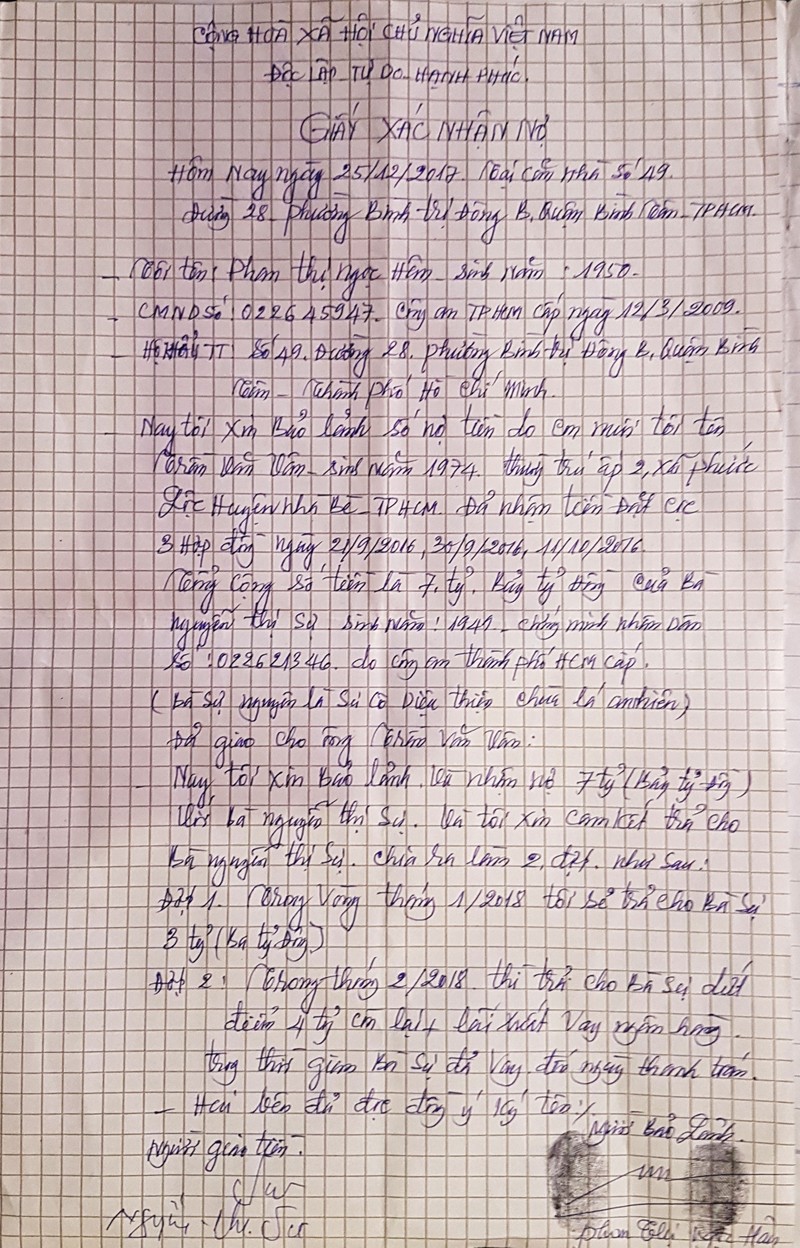 CỘNG HOÀ XÃ HỘI CHỦ NGHĨA VIỆT NAM
ĐỘC LẬP TỰ DO HẠNH PHÚC.
GIẤY XÁC NHẬN NỢ
Hôm Nay ngày 25/12/2017. Tại căn nhà số 49.
đường 28 phường Bình trị Đông B, Quận Bình Tân TPHCM.
- Tôi tên: Phan thị ngọc Hân sinh năm: 1950.
- CMND Số: 022645947. Công an TPHCM cấp ngày 12/3/2009.
- Hộ khẩu TT: Số 49. Đường 28. phường Bình trị Đông B, Quận Bình
Tân - Thành phố Hồ Chí Minh.
- Nay tôi xin Bảo lảnh số nợ tiền do em tôi tên
Trần Văn Vân sinh năm 1974. thường trú ấp 2, xã phước
Lộc Huyện Nhà Bè - TPHCM. Đả nhận tiền Đặt cọc
3 Hợp đồng ngày 21/9/2016, 30/9/2016, 11/10/2016.
Tổng cộng số tiền là 7. tỷ. Bảy tỷ đồng của Bà
nguyễn thị Sự sinh năm: 1941 - chứng minh nhân dân
số: 022621346. do công an thành phố HCM cấp.
(Bà Sự nguyên là Sư Cô Diệu thiện chùa lá an nhiên)
Đả giao cho ông Trần Văn Vân:
- Nay tôi xin Bảo lảnh và nhận nợ 7 tỷ (Bảy tỷ đồng)
Với bà nguyễn thị Sự. Và tôi xin cam kết trả cho
Bà nguyễn thị Sự. chia ra làm 2. đợt. như sau:
Đợt 1. Trong vòng tháng 1/2018 tôi sẻ trả cho Bà Sự
3 tỷ (Ba tỷ đồng)
Đợt 2: Trong tháng 2/2018. thì trả cho Bà Sự dứt
điểm 4 tỷ còn lại + lãi xuất vay ngân hàng.
trong thời gian Bà Sự đả vay. đến ngày thanh toán.
- Hai bên đả đọc đồng ý ký tên./.
Người Bảo Lảnh.
Người giao tiền.
Nguyễn Thị Sự
Phan Thị Ngọc Hân